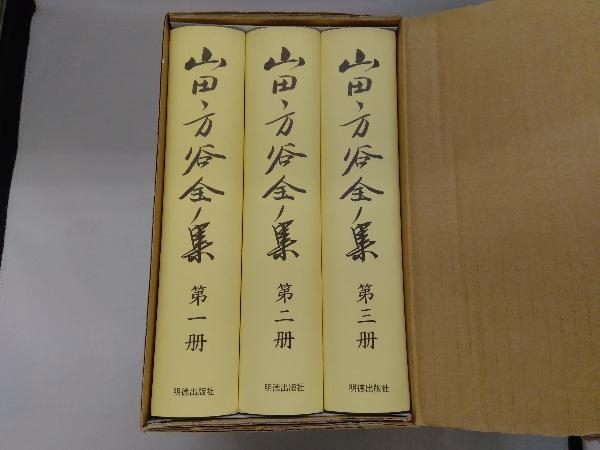 山田方谷全集
第一册
明徳出版社
山田方谷全集
第二册
明徳出版社
山田方谷全集
第三册
明徳出版社